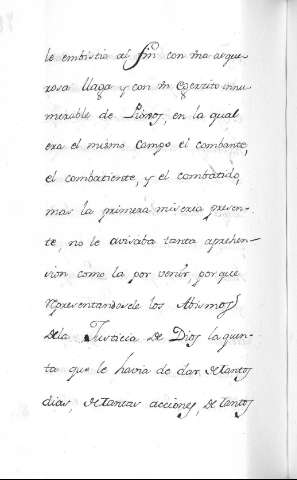 le embistia al fin con vna asque-
rosa llaga y con vn Egerzito innu-
merable de Piojos, en la qual
era el mismo campo el combate,
el combatiente, y el combatido,
mas la primera miseria presen-
te, no le avisaba tanta aprehen-
sion como la por venir, porque
representandosele los Abismos
dela Justicia de Dios la quen-
ta que le havia de dar, de tantos
dias, de tantas acciones, de tantos